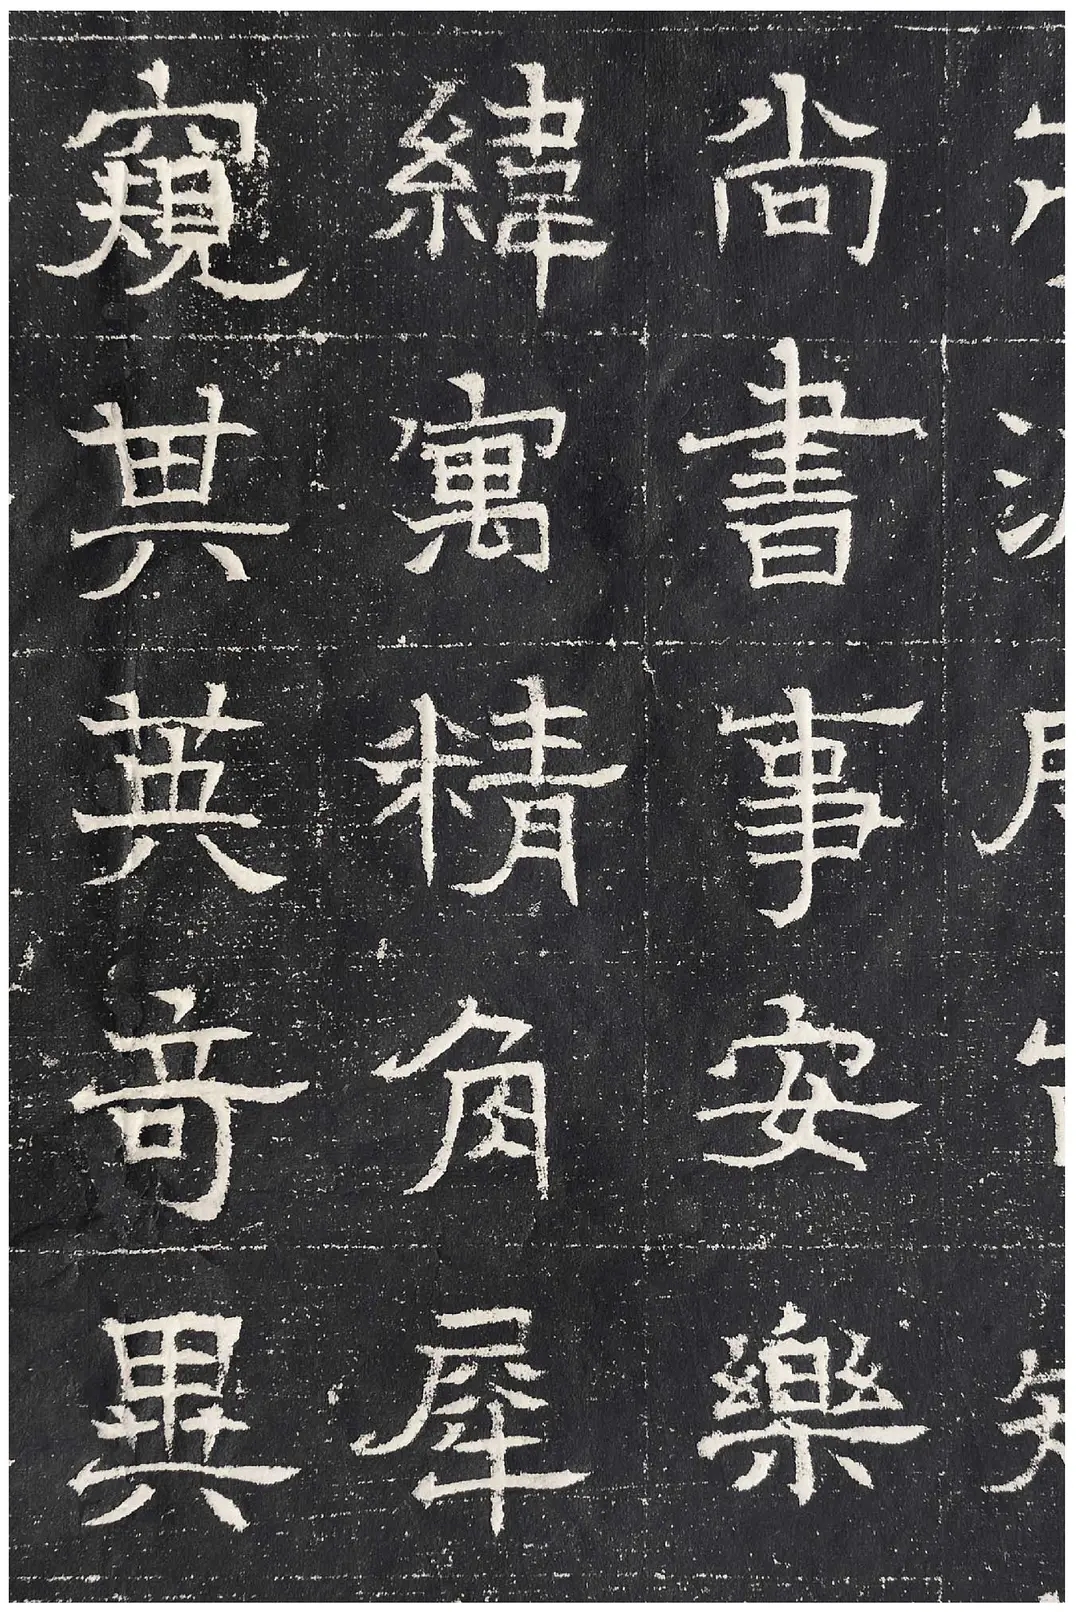 尚書事安樂
緯寓精角犀
窺其英奇異